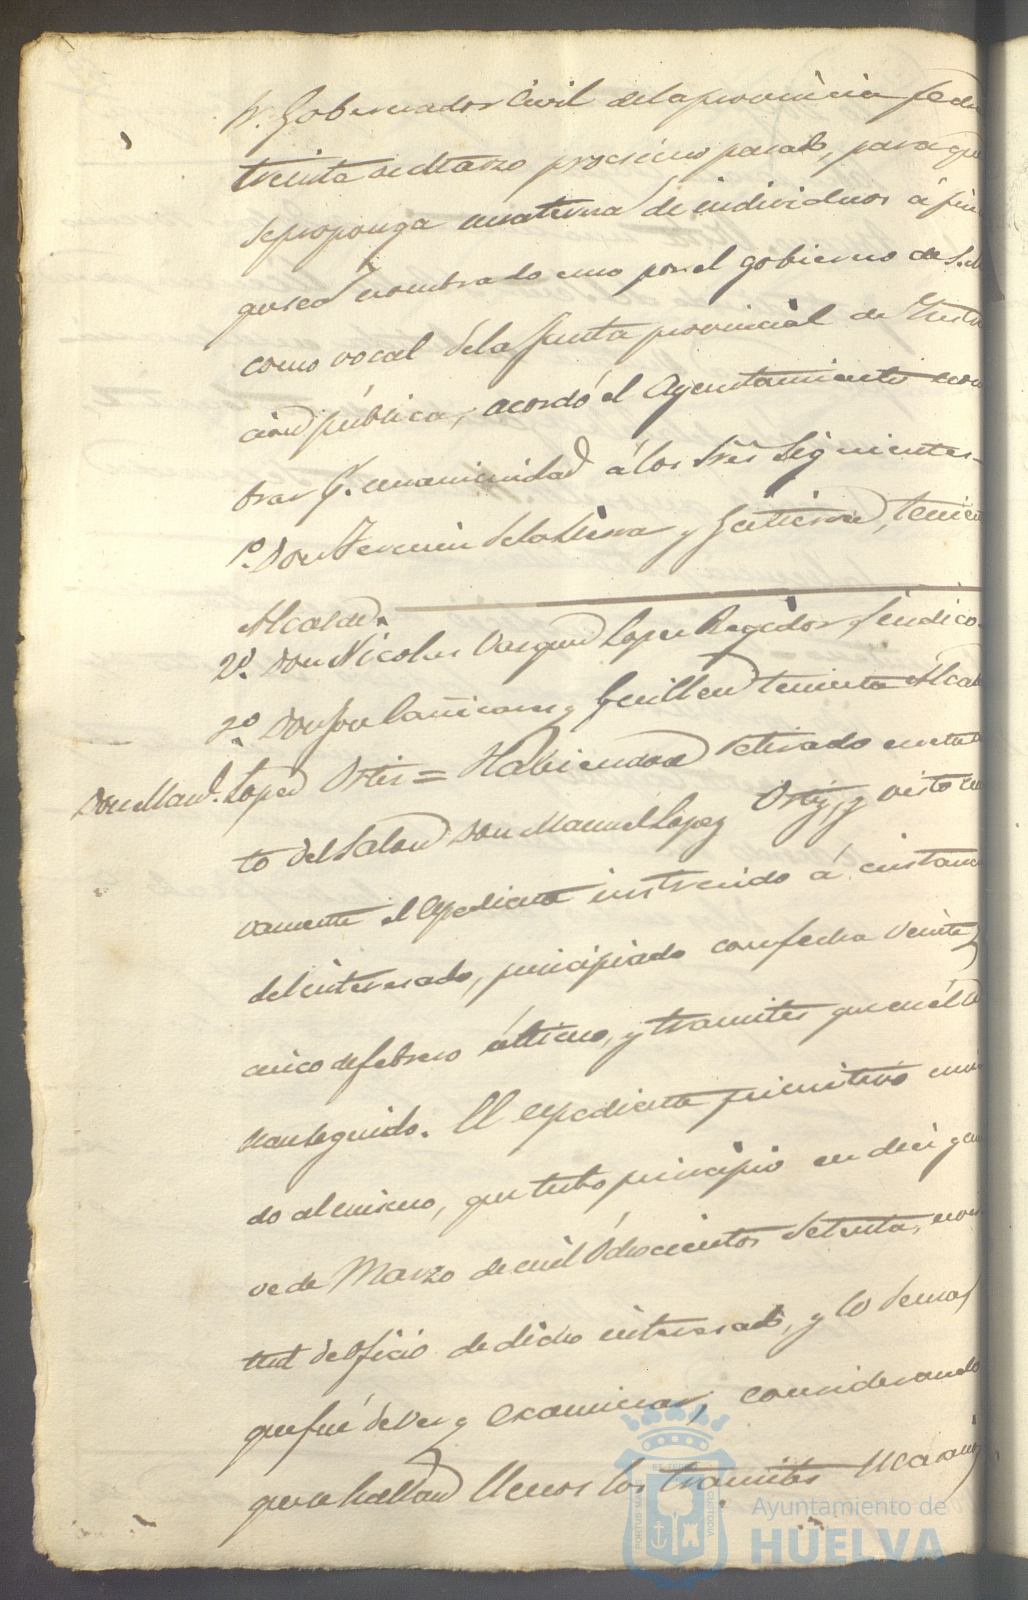 Sr. Gobernador Civil de la provincia fecha
treinta de Marzo procsimo pasado, para que
se proponga una terna de individuos á fin
que sea nombrado uno por el gobierno de S.M.
como vocal de la Junta provincial de Instruc
cion pública, acordó el Ayuntamiento nom
brar p.r unanimidad á los Sres siguientes
1º. Don Fermin de la Sierra y Gutierrez, teniente
Alcalde.
2º. Don Nicolas Vazquez Lopez Regidor Sindico
3º Don José y Guillen teniente Alcalde
Don Man.l Lopez Ortiz = Habiendose retirado en este ac
to del Salon Don Manuel Lopez Ortiz, y visto nue
vamente el expediente instruido á instancia
del interesado, principiado con fecha veinte y
cinco de febrero último, y tramites que en él se
han seguido. El expediente primitivo uni
do al mismo, que tubo principio en diez y nue
ve de Marzo de mil Ochocientos Setenta,
de Oficio de dicho interesado, y lo demas
que fué de ver y examinar, considerando
que se hallan llenos los tramites
PORTUS MARIS
ET TERRAE
CUSTODIA
Ayuntamiento de
HUELVA